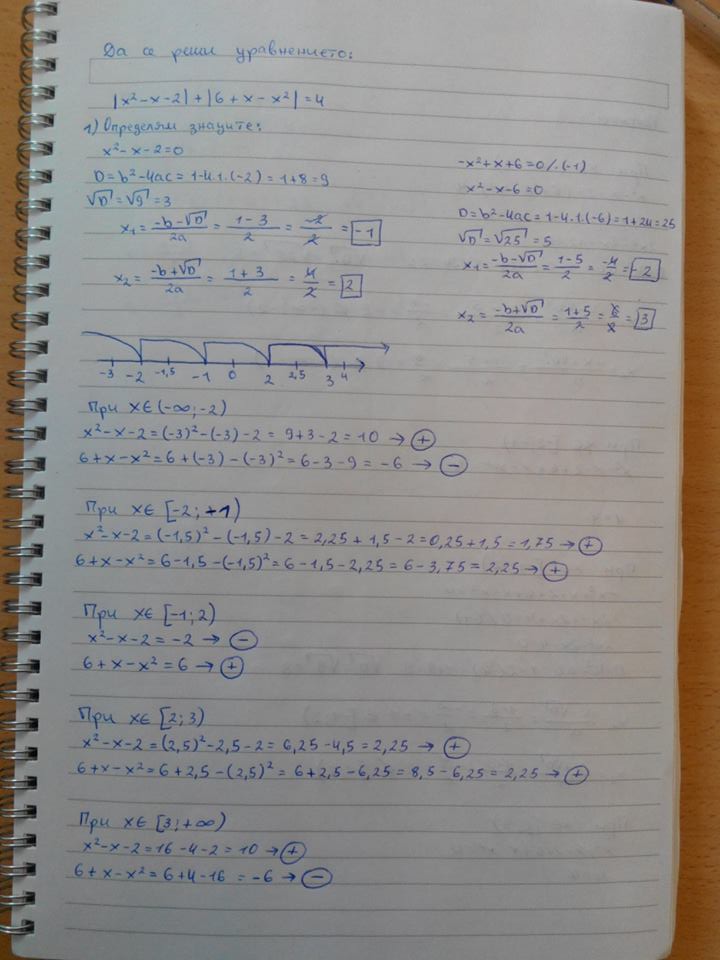 Да се реши уравнението:
|x²-x-2|+|6+x-x²|=4
1) Определям знаците:
x²-x-2=0
D=b²-4ac=1-4.1.(-2)=1+8=9
√D=√9=3
x₁=(-b-√D)/2a=(1-3)/2=-2/2=-1
x₂=(-b+√D)/2a=(1+3)/2=4/2=2
-x²+x+6=0/.(-1)
x²-x-6=0
D=b²-4ac=1-4.1.(-6)=1+24=25
√D=√25=5
x₁=(-b-√D)/2a=(1-5)/2=-4/2=-2
x₂=(-b+√D)/2a=(1+5)/2=6/2=3
-3 -2 -1,5 -1 0 2 2,5 3 4
При x∈(-∞;-2)
x²-x-2=(-3)²-(-3)-2=9+3-2=10→⊕
6+x-x²=6+(-3)-(-3)²=6-3-9=-6→⊖
При x∈[-2;+1)
x²-x-2=(-1,5)²-(-1,5)-2=2,25+1,5-2=0,25+1,5=1,75→⊕
6+x-x²=6-1,5-(-1,5)²=6-1,5-2,25=6-3,75=2,25→⊕
При x∈[-1;2)
x²-x-2=-2→⊖
6+x-x²=6→⊕
При x∈[2;3)
x²-x-2=(2,5)²-2,5-2=6,25-4,5=2,25→⊕
6+x-x²=6+2,5-(2,5)²=6+2,5-6,25=8,5-6,25=2,25→⊕
При x∈[3;+∞)
x²-x-2=16-4-2=10→⊕
6+x-x²=6+4-16=-6→⊖